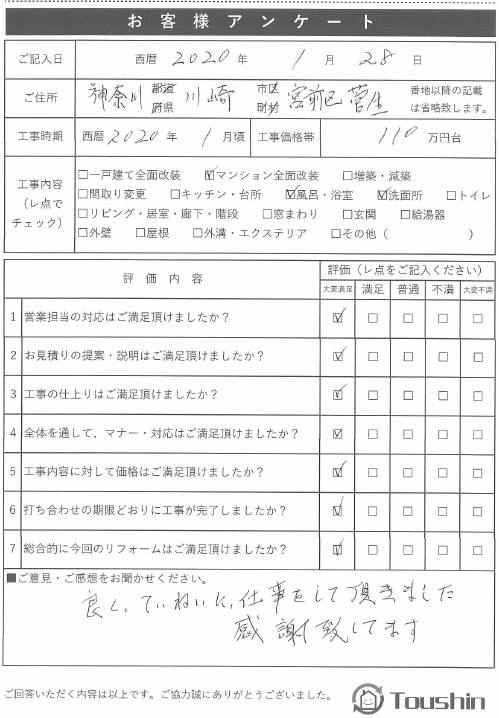 お客様アンケート
ご記入日 西暦 2020 年 1 月 28 日
ご住所 神奈川 都道府県 川崎 市区町村 宮前区 菅生 番地以降の記載は省略致します。
工事時期 西暦 2020 年 1 月頃 工事価格帯 110 万円台
工事内容（レ点でチェック）
□一戸建て全面改装 ☑マンション全面改装 □増築・減築
□間取り変更 □キッチン・台所 ☑風呂・浴室 ☑洗面所 □トイレ
□リビング・居室・廊下・階段 □窓まわり □玄関 □給湯器
□外壁 □屋根 □外溝・エクステリア □その他（ ）
評価内容 評価（レ点をご記入ください）
大変満足 満足 普通 不満 大変不満
1 営業担当の対応はご満足頂けましたか？ ☑ □ □ □ □
2 お見積りの提案・説明はご満足頂けましたか？ ☑ □ □ □ □
3 工事の仕上りはご満足頂けましたか？ ☑ □ □ □ □
4 全体を通して、マナー・対応はご満足頂けましたか？ ☑ □ □ □ □
5 工事内容に対して価格はご満足頂けましたか？ ☑ □ □ □ □
6 打ち合わせの期限どおりに工事が完了しましたか？ ☑ □ □ □ □
7 総合的に今回のリフォームはご満足頂けましたか？ ☑ □ □ □ □
■ご意見・ご感想をお聞かせください。
良く、ていねいに、仕事をして頂きました
感謝致してます
ご回答いただく内容は以上です。ご協力誠にありがとうございました。
Toushin